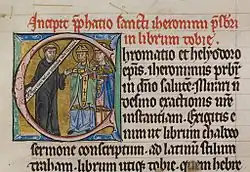 Incipit p̄hatio sancti iheronimi p̄sb̄ri
in librum tobie.
cromatio et heliodoro
ep̄is. iheronimus pr̄br̄
in d̄no salutē. Mirari n̄
desino exactionis vr̄e
instantiam. Exigitis e
nim ut librum chaldeo
sermone conscriptum. ad latinum stilum
traham. librum utiq; tobie. quem hebre